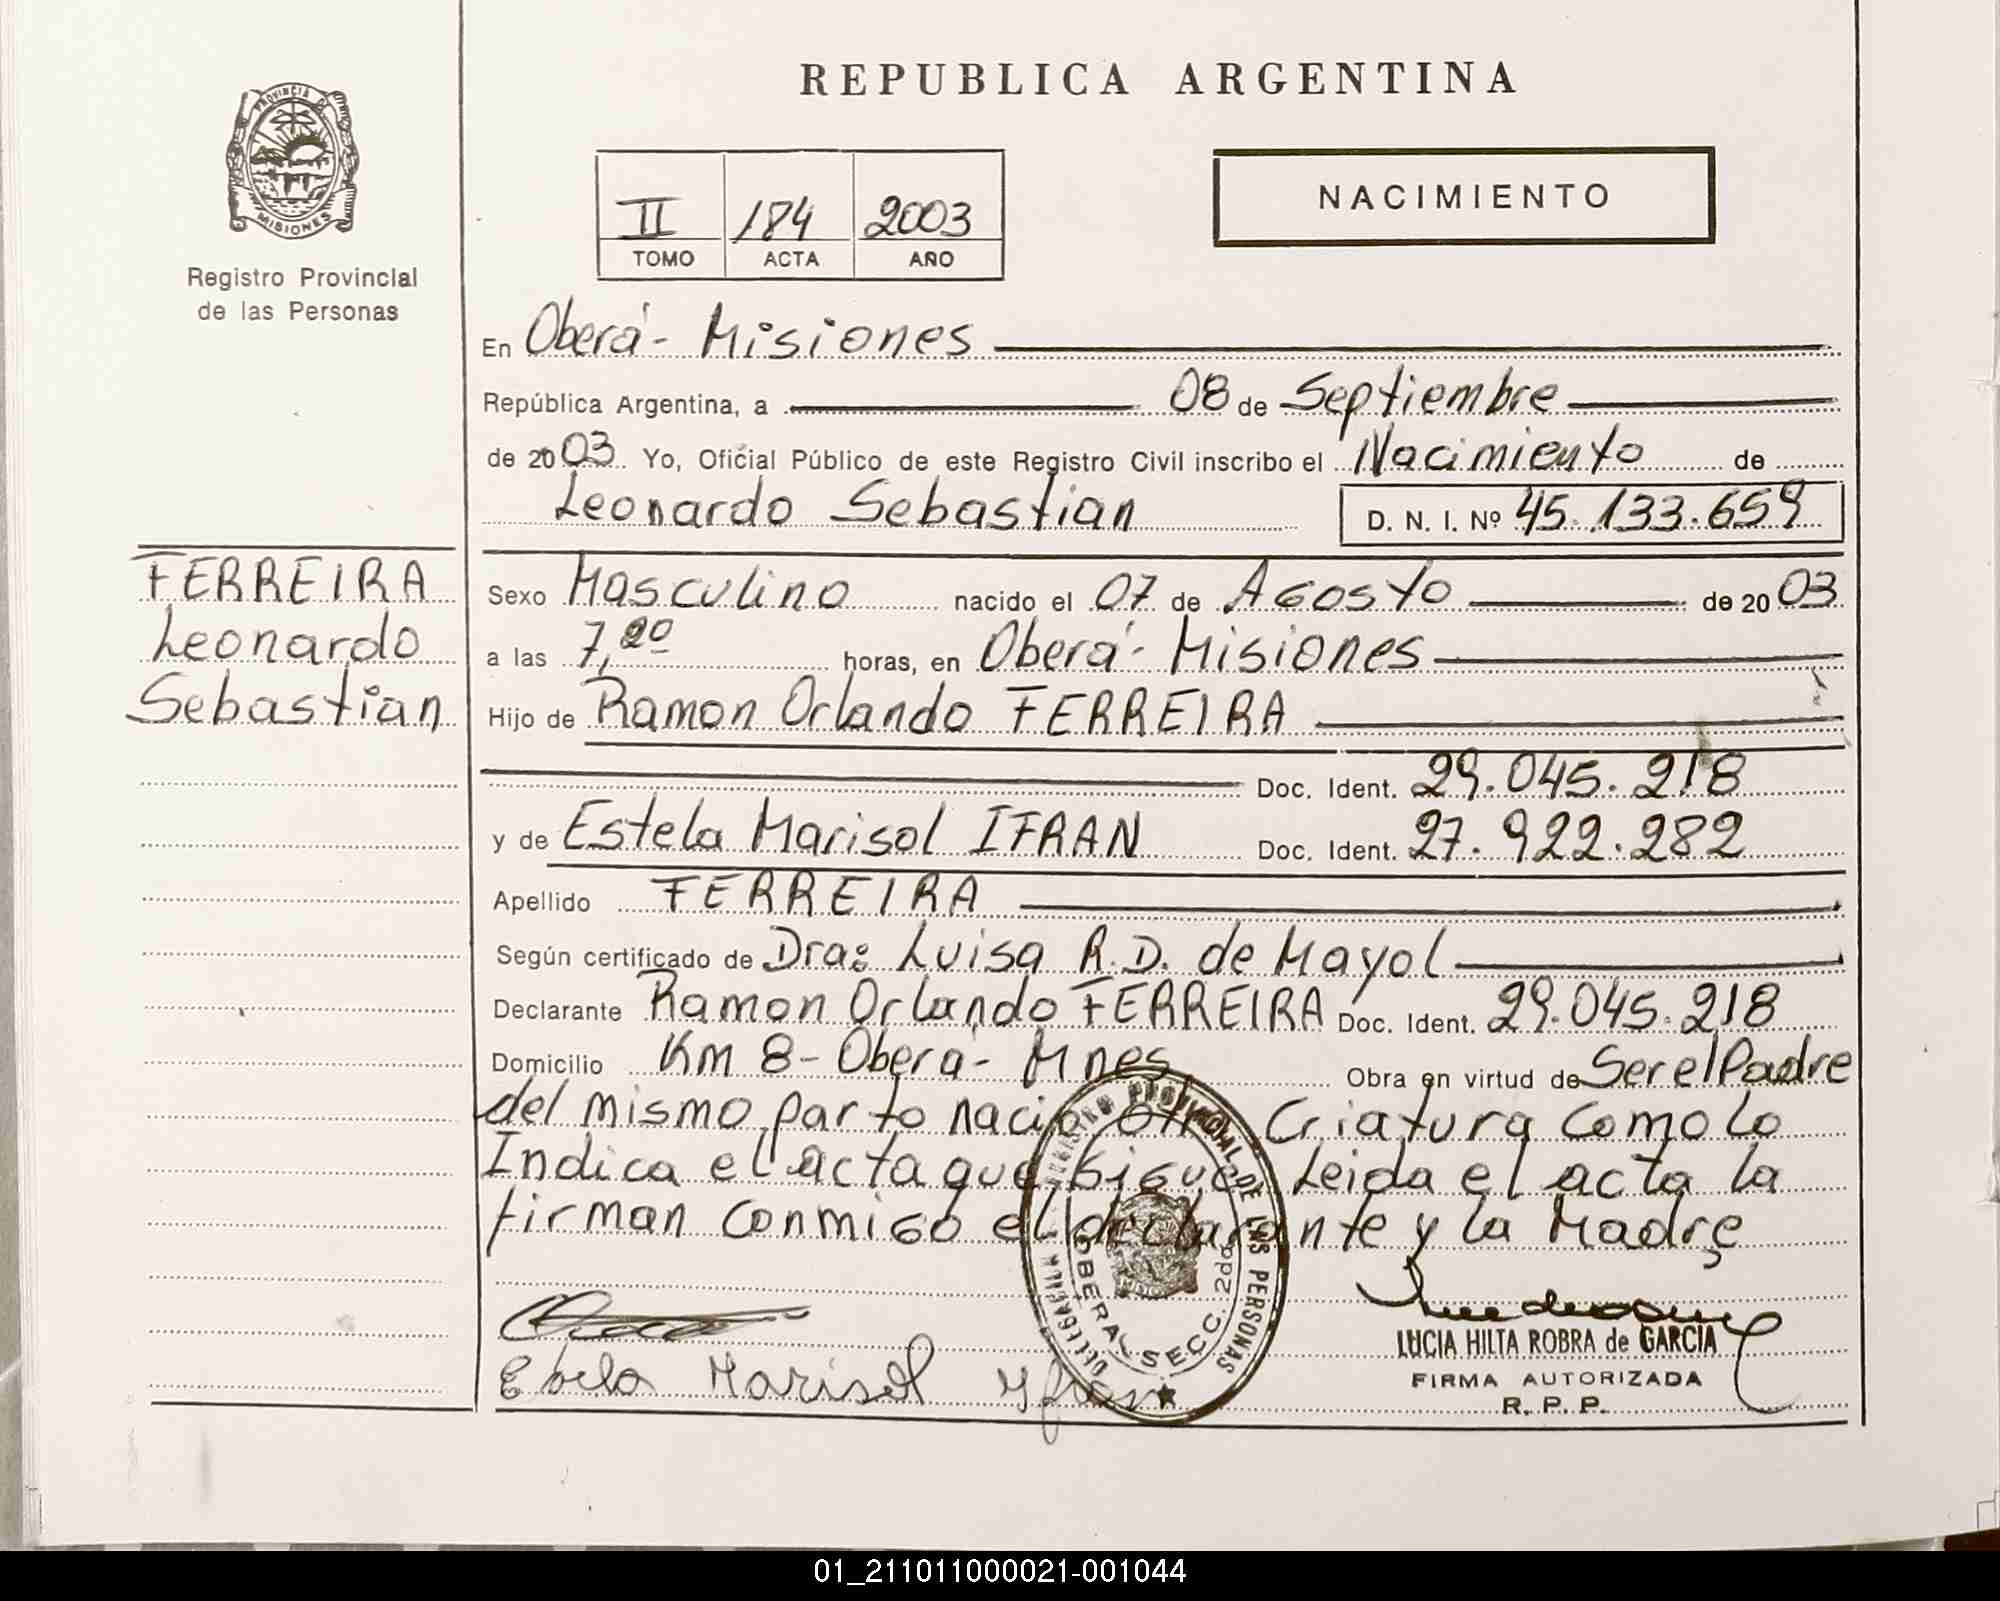 REPUBLICA ARGENTINA
PROVINCIA DE
MISIONES
Registro Provincial
de las Personas
NACIMIENTO
II 184 2003
TOMO ACTA AÑO
En Oberá - Misiones
República Argentina, a 08 de Septiembre
de 2003 Yo, Oficial Público de este Registro Civil inscribo el Nacimiento de
Leonardo Sebastian D. N. I. Nº 45.133.659
FERREIRA
Leonardo
Sebastian
Sexo Masculino nacido el 07 de Agosto de 2003
a las 7,20 horas, en Oberá - Misiones
Hijo de Ramon Orlando FERREIRA
Doc. Ident. 29.045.218
y de Estela Marisol IFRAN Doc. Ident. 27.922.282
Apellido FERREIRA
Según certificado de Dra: Luisa R.D. de Mayol
Declarante Ramon Orlando FERREIRA Doc. Ident. 29.045.218
Domicilio Km 8 - Oberá - Mnes Obra en virtud de Ser el Padre
del mismo parto nació otra Criatura como lo
Indica el acta que sigue Leida el acta la
firman conmigo el declarante y la Madre
Estela Marisol Yfran
DELEGACION REGISTRO PROVINCIAL DE LAS PERSONAS
OBERA SECC. 2da
LUCIA HILTA ROBRA de GARCIA
FIRMA AUTORIZADA
R. P. P.
01_211011000021-001044